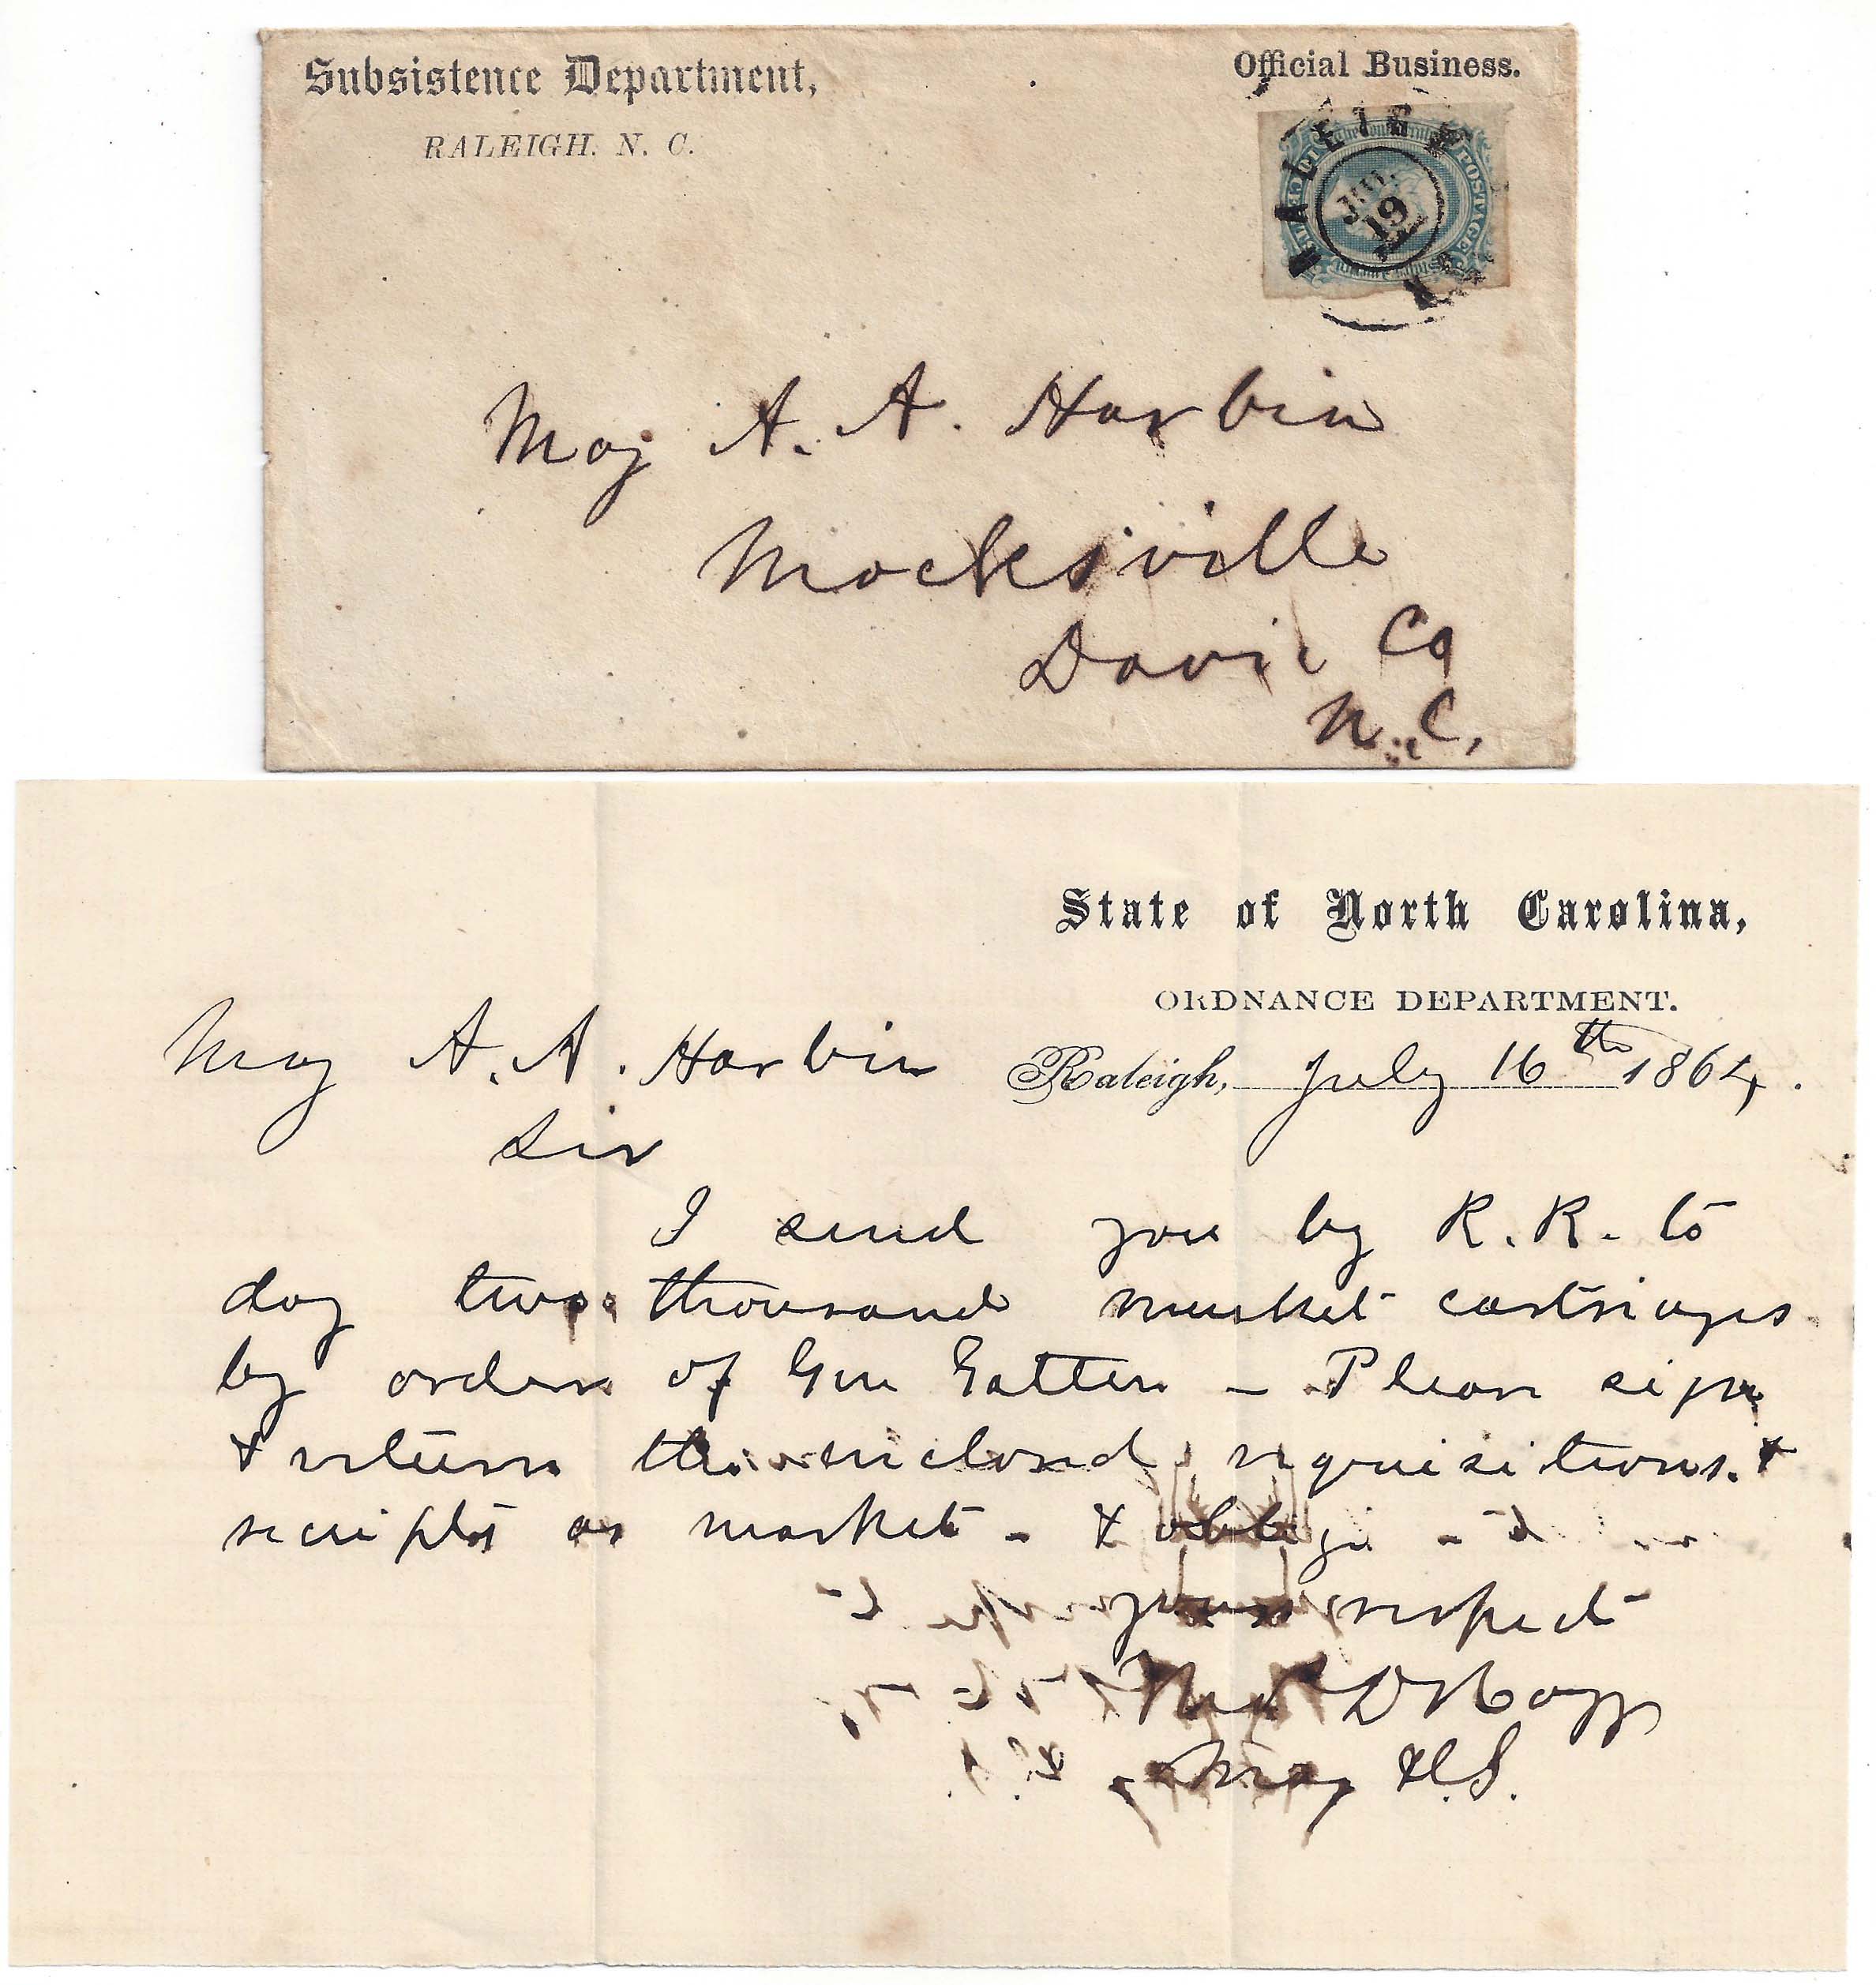 Subsistence Department,
Official Business.
RALEIGH. N. C.
The Confederate
POSTAGE
RALEIGH
JUL
19
Maj A. A. Harbin
Mocksville
Davie Co
N. C.
State of North Carolina,
ORDNANCE DEPARTMENT.
Raleigh, July 16th 1864.
Maj A. A. Harbin
Sir
I send you by R. R. to
day two thousand musket cartriages
by order of Gen Gatten - Please sign
& return the inclosed requisitions &
reciepts as market - & oblige
yours respect
Thos D Hogg
Maj &C.S.